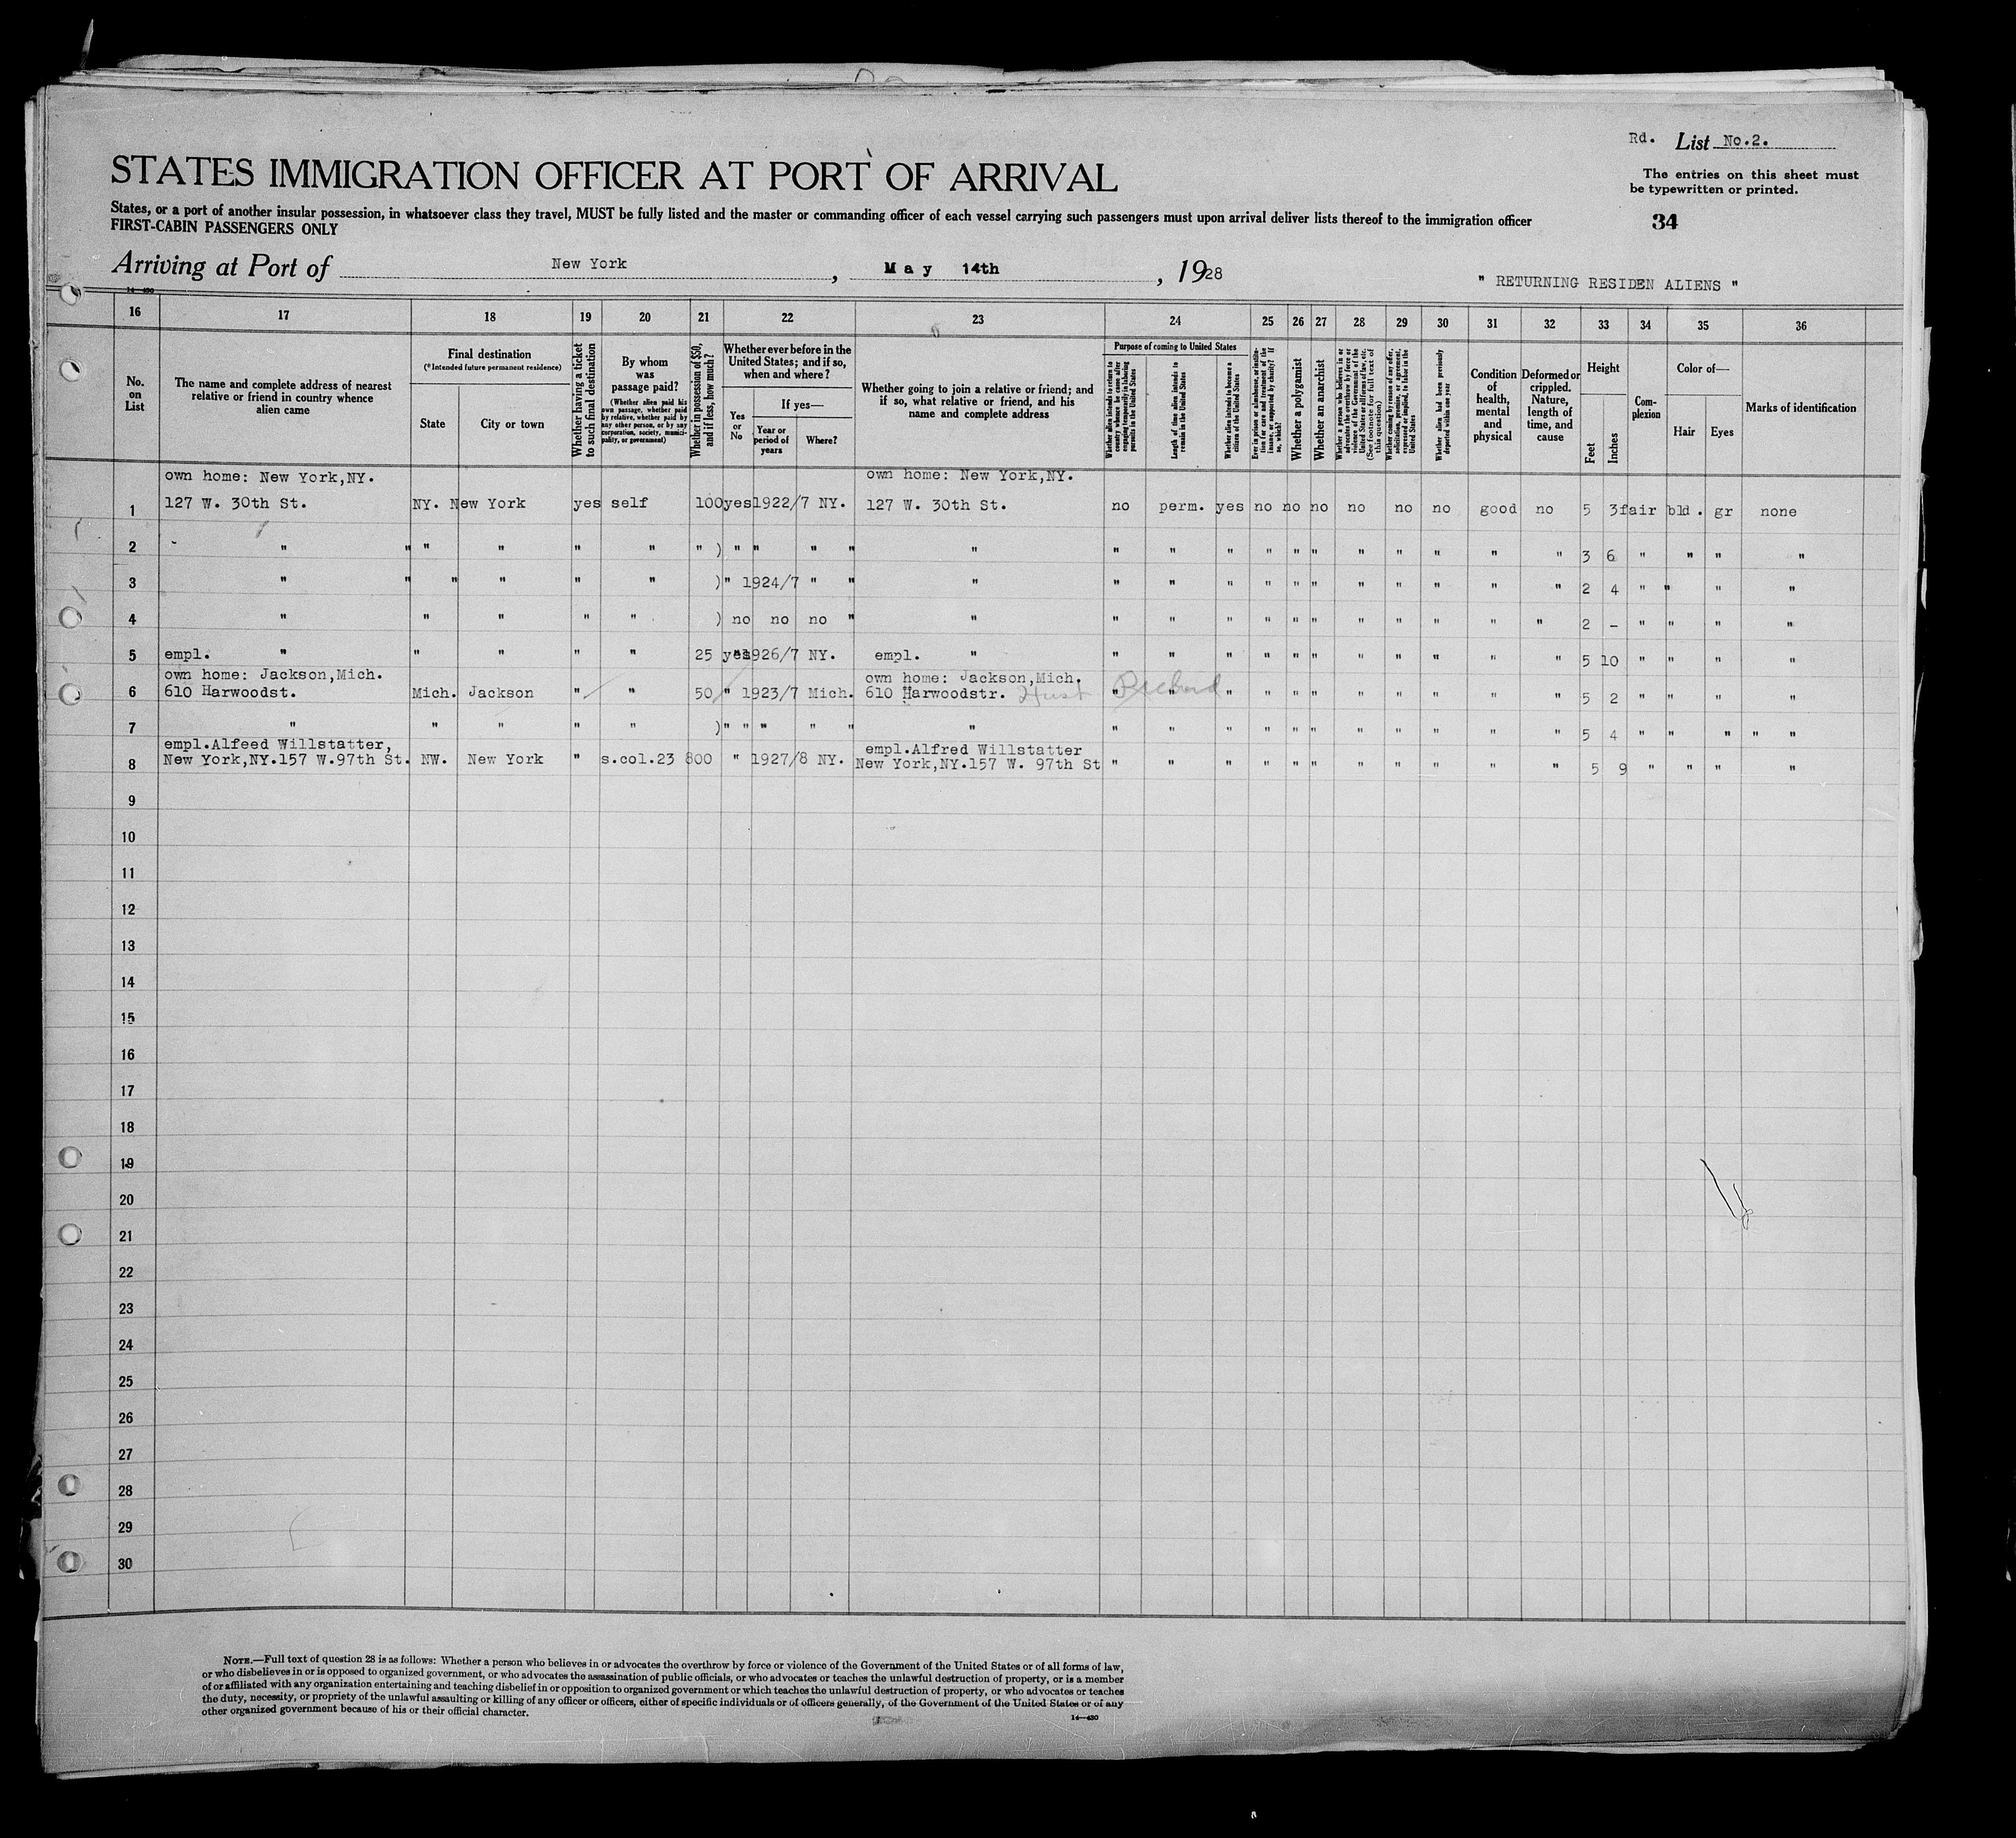 Rd. List No.2.
STATES IMMIGRATION OFFICER AT PORT OF ARRIVAL
The entries on this sheet must
be typewritten or printed.
States, or a port of another insular possession, in whatsoever class they travel, MUST be fully listed and the master or commanding officer of each vessel carrying such passengers must upon arrival deliver lists thereof to the immigration officer
FIRST-CABIN PASSENGERS ONLY
34
Arriving at Port of New York, May 14th, 1928
" RETURNING RESIDEN ALIENS "
14—430
16 17 18 19 20 21 22 23 24 25 26 27 28 29 30 31 32 33 34 35 36
No. on List
The name and complete address of nearest relative or friend in country whence alien came
Final destination
(*Intended future permanent residence)
State
City or town
Whether having a ticket to such final destination
By whom was passage paid?
(Whether alien paid his own passage, whether paid by relative, whether paid by any other person, or by any corporation, society, municipality, or government)
Whether in possession of $50, and if less, how much?
Whether ever before in the United States; and if so, when and where?
Yes or No
If yes—
Year or period of years
Where?
Whether going to join a relative or friend; and if so, what relative or friend, and his name and complete address
Purpose of coming to United States
Whether alien intends to return to country whence he came after engaging temporarily in laboring pursuits in the United States
Length of time alien intends to remain in the United States
Whether alien intends to become a citizen of the United States
Ever in prison or almshouse, or institution for care and treatment of the insane, or supported by charity? If so, which?
Whether a polygamist
Whether an anarchist
Whether a person who believes in or advocates the overthrow by force or violence of the Government of the United States or all forms of law, etc. (See footnote for full text of this question)
Whether coming by reason of any offer, solicitation, promise, or agreement, expressed or implied, to labor in the United States
Whether alien had been previously deported within one year
Condition of health, mental and physical
Deformed or crippled. Nature, length of time, and cause
Height
Feet
Inches
Complexion
Color of—
Hair
Eyes
Marks of identification
own home: New York,NY. own home: New York,NY.
1 127 W. 30th St. NY. New York yes self 100 yes 1922/7 NY. 127 W. 30th St. no perm. yes no no no no no no good no 5 3 fair bld. gr none
2 " " " " " " " ) " " " " " " " " " " " " " " " " " 3 6 " " " "
3 " " " " " " )" 1924/7 " " " " " " " " " " " " " " 2 4 " " " "
4 " " " " " ) no no no " " " " " " " " " " " " " 2 - " " " "
5 empl. " " " " " 25 yes 1926/7 NY. empl. " " " " " " " " " " " " 5 10 " " " "
own home: Jackson,Mich. own home: Jackson,Mich.
6 610 Harwoodst. Mich. Jackson " " 50 " 1923/7 Mich. 610 Harwoodstr. " " " " " " " " " " " 5 2 " " " "
7 " " " " " )" " " " " " " " " " " " " " " " " 5 4 " " " " "
empl.Alfeed Willstatter, empl.Alfred Willstatter
8 New York,NY.157 W.97th St. NW. New York " s.col.23 800 " 1927/8 NY. New York,NY.157 W. 97th St " " " " " " " " " " " 5 9 " " " "
9
10
11
12
13
14
15
16
17
18
19
20
21
22
23
24
25
26
27
28
29
30
NOTE.—Full text of question 28 is as follows: Whether a person who believes in or advocates the overthrow by force or violence of the Government of the United States or of all forms of law,
or who disbelieves in or is opposed to organized government, or who advocates the assassination of public officials, or who advocates or teaches the unlawful destruction of property, or is a member
of or affiliated with any organization entertaining and teaching disbelief in or opposition to organized government or which teaches the unlawful destruction of property, or who advocates or teaches
the duty, necessity, or propriety of the unlawful assaulting or killing of any officer or officers, either of specific individuals or of officers generally, of the Government of the United States or of any
other organized government because of his or their official character.
14—430